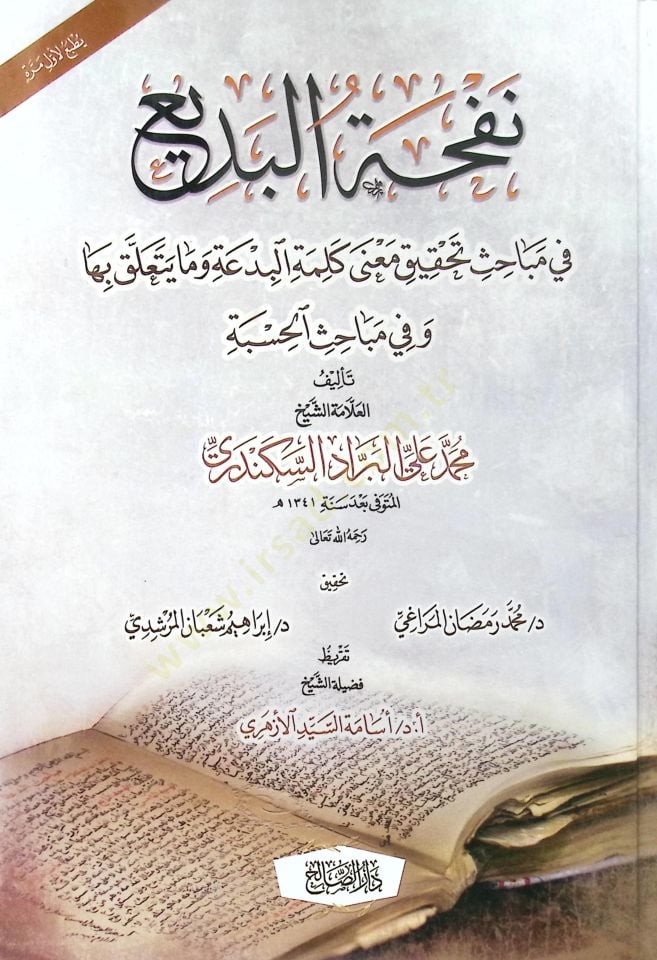 يطبع لأول مرة
نَفْحَةُ الْبَدِيعِ
فِي مَبَاحِثِ تَحْقِيقِ مَعْنَى كَلِمَةِ الْبِدْعَةِ وَمَا يَتَعَلَّقُ بِهَا
وَفِي مَبَاحِثِ الْحِسْبَةِ
تَأْلِيفُ
العَلَّامَة الشَّيْخ
مُحَمَّد عَلِيّ البَرَّاد السَّكَنْدَرِيّ
المُتَوَفَّى بَعْدَ سَنَةِ ١٣٤١ هـ
رَحِمَهُ اللهُ تَعَالَى
تحقيق
د/ مُحَمَّد رَمَضَان المَرَاغِيّ
د/ إِبْرَاهِيم شَعْبَان المُرْشِدِيّ
تَقْرِيظُ
فضيلة الشَّيْخ
أ.د/ أُسَامَة السَّيِّد الأَزْهَرِي
دَارُ الصَّالِحِ
www.irsad.com.tr